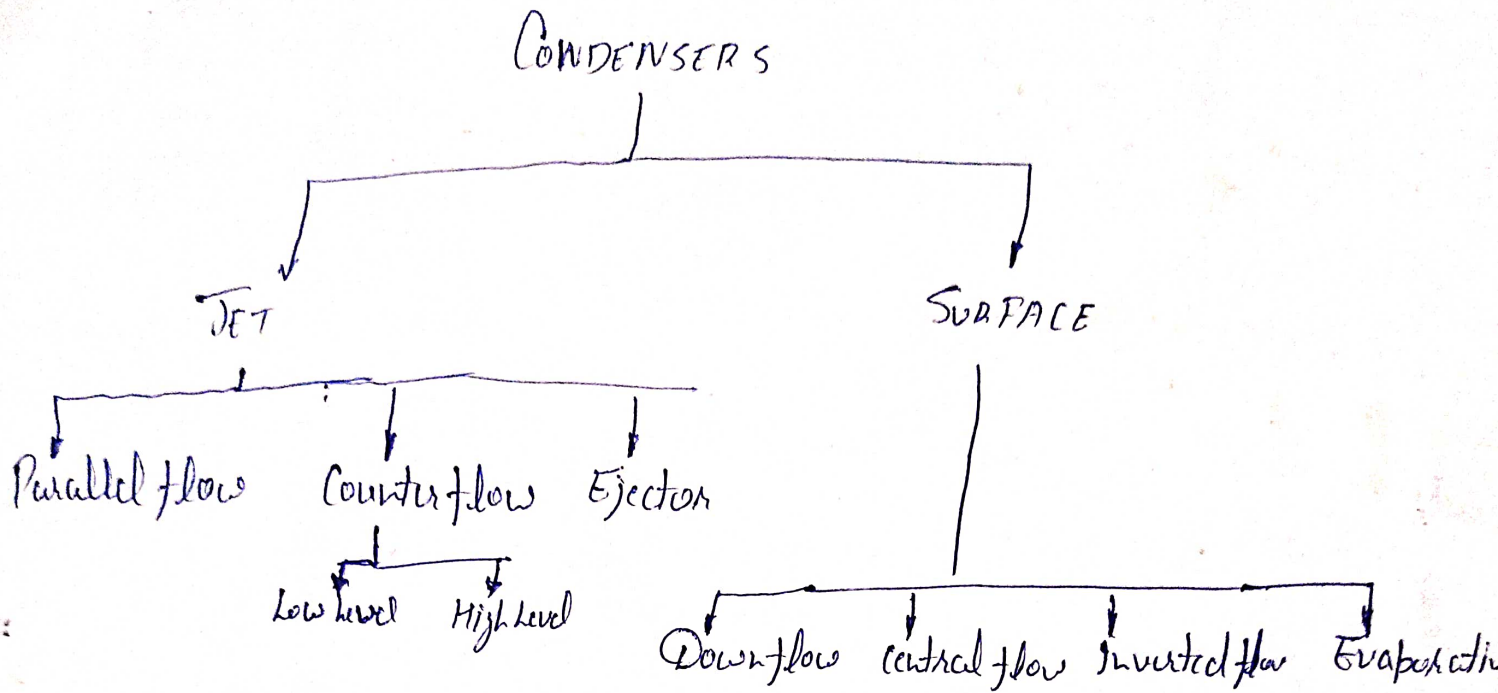 CONDENSERS
JET SURFACE
Parallel flow Counter flow Ejector
Low Level High Level
Down flow Central flow Inverted flow Evaporativ